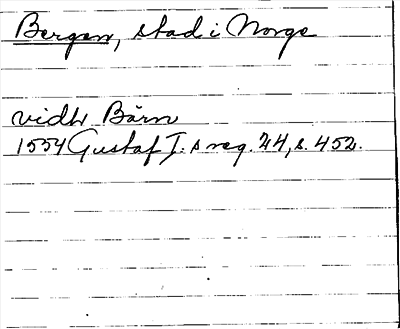 Bergen, stad i Norge
vidh Bärn
1554 Gustaf I:s reg. 24, s. 452.